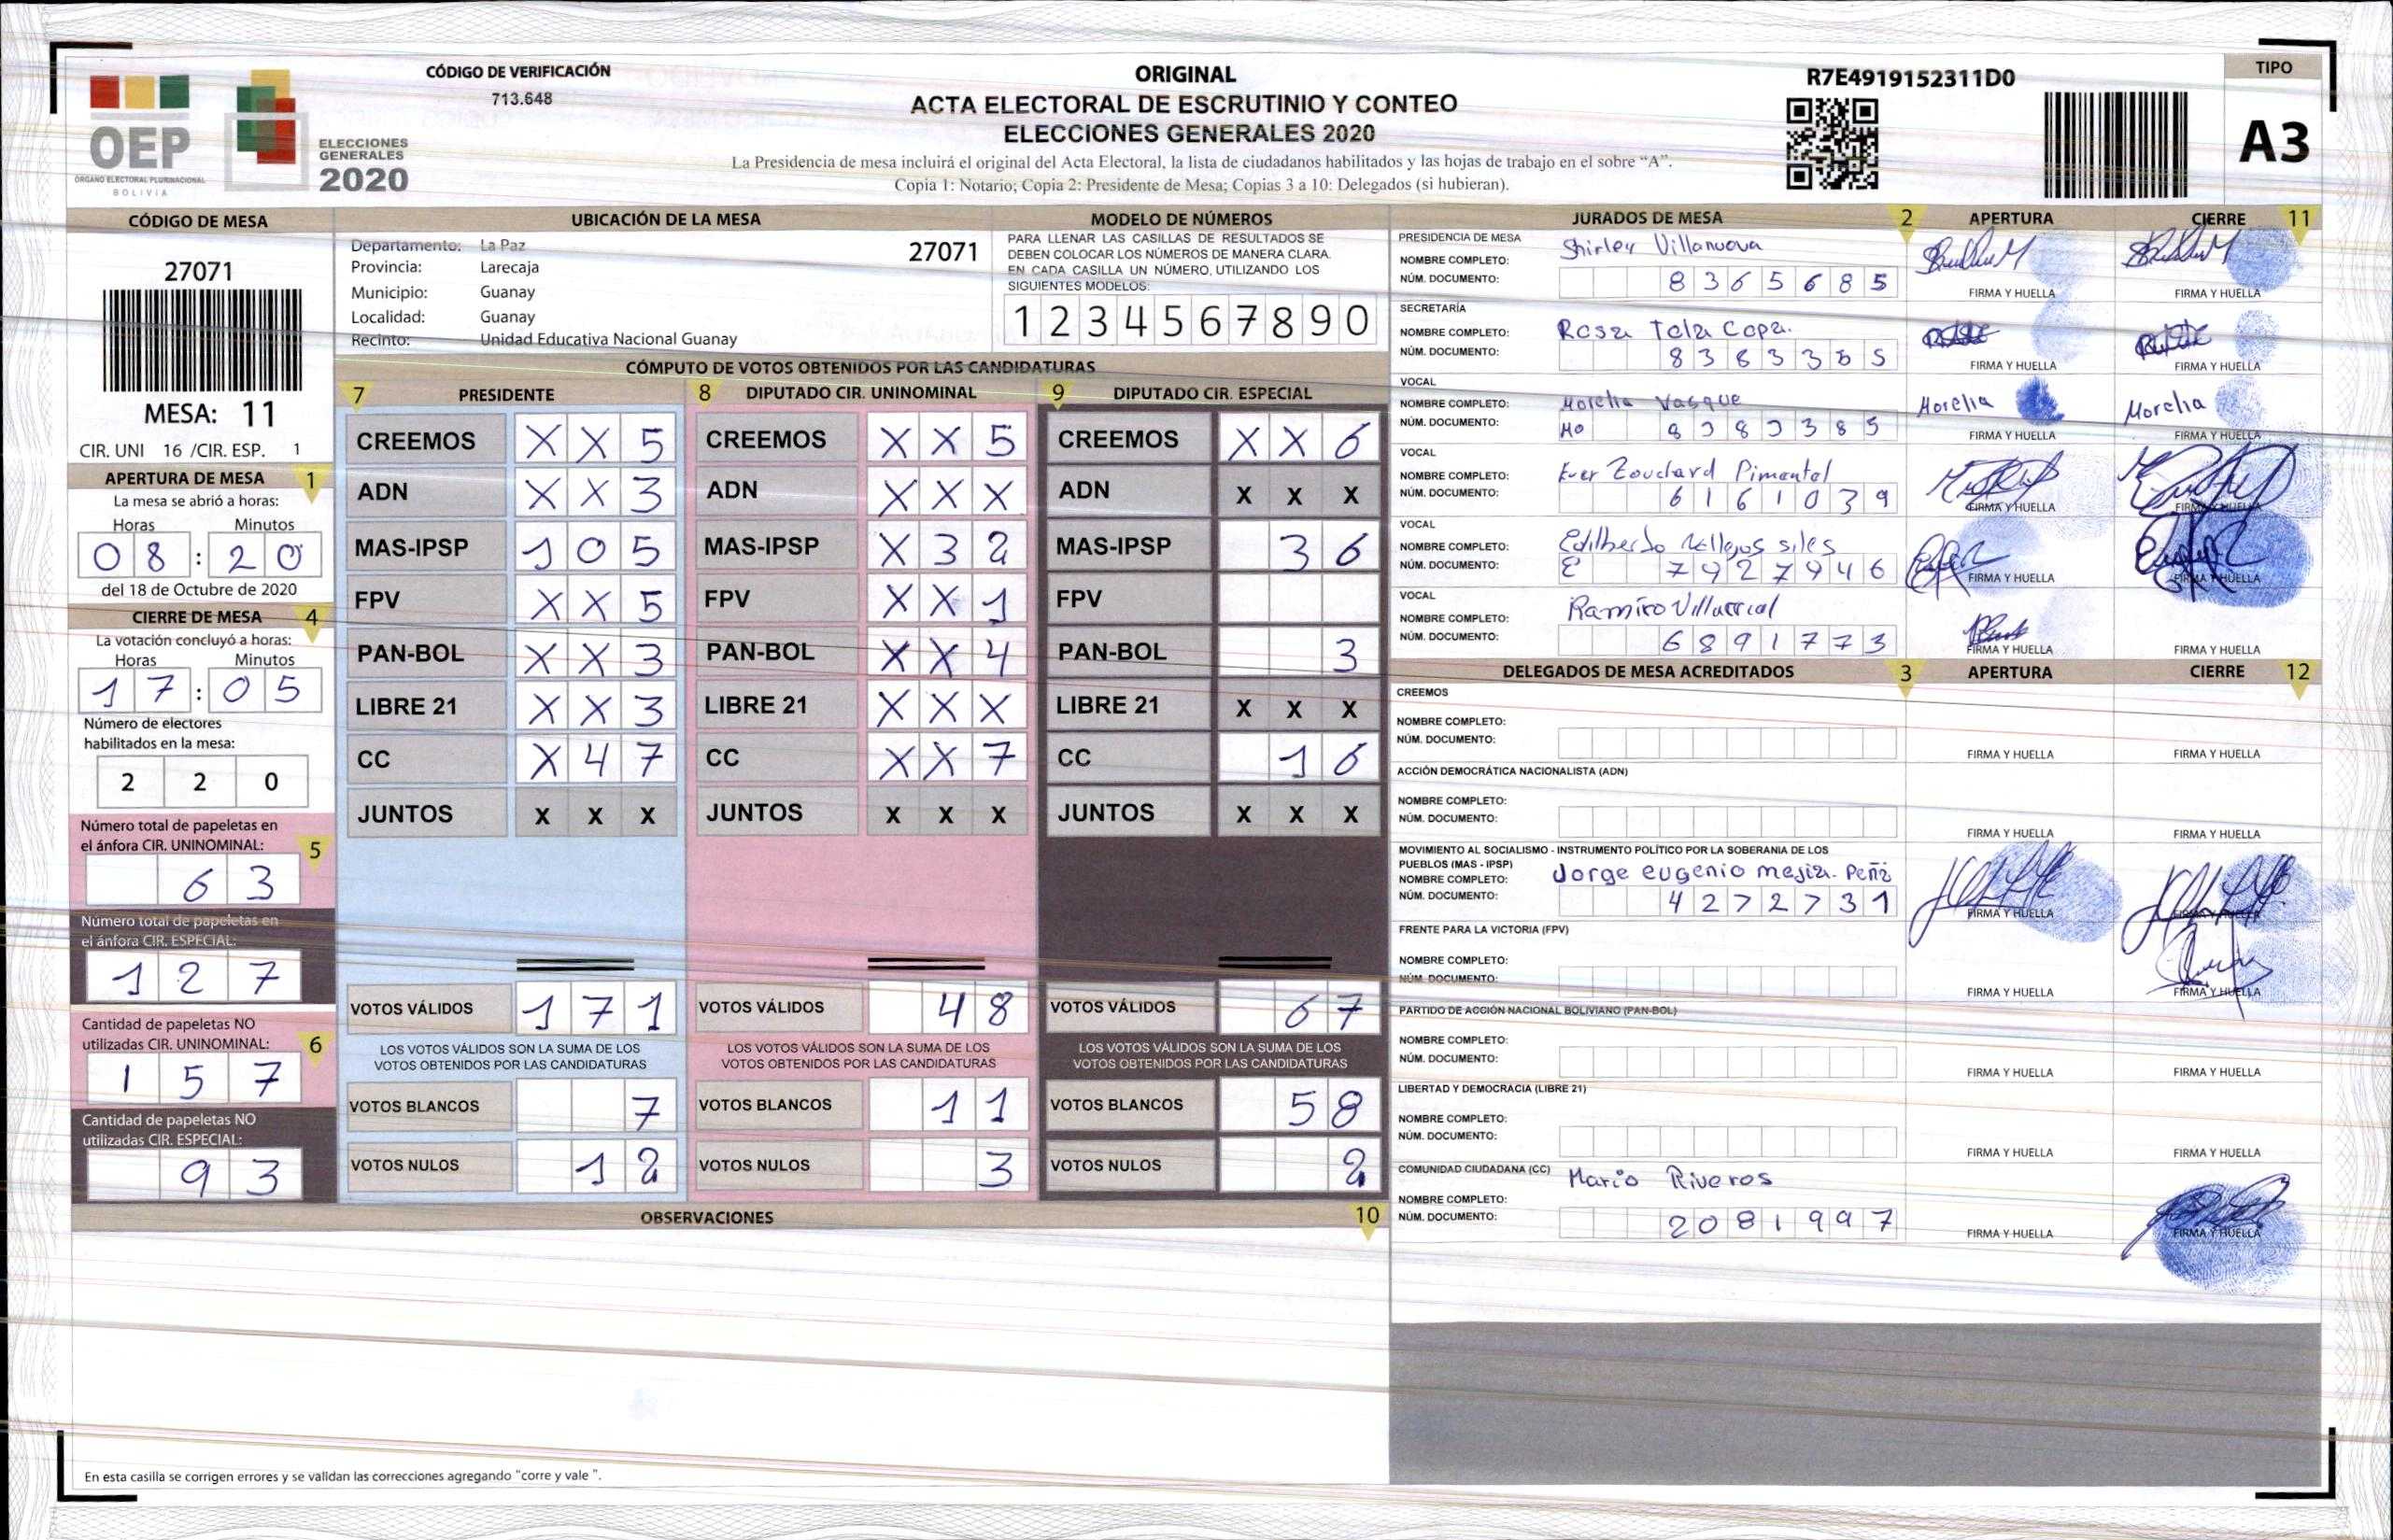 CÓDIGO DE VERIFICACIÓN
713.648
OEP
ÓRGANO ELECTORAL PLURINACIONAL
BOLIVIA
ELECCIONES
GENERALES
2020
ORIGINAL
ACTA ELECTORAL DE ESCRUTINIO Y CONTEO
ELECCIONES GENERALES 2020
La Presidencia de mesa incluirá el original del Acta Electoral, la lista de ciudadanos habilitados y las hojas de trabajo en el sobre “A”.
Copia 1: Notario; Copia 2: Presidente de Mesa; Copias 3 a 10: Delegados (si hubieran).
R7E4919152311D0
TIPO
A3
CÓDIGO DE MESA
27071
MESA: 11
CIR. UNI 16 /CIR. ESP. 1
APERTURA DE MESA 1
La mesa se abrió a horas:
Horas Minutos
0 8 : 2 0
del 18 de Octubre de 2020
CIERRE DE MESA 4
La votación concluyó a horas:
Horas Minutos
1 7 : 0 5
Número de electores
habilitados en la mesa:
2 2 0
Número total de papeletas en
el ánfora CIR. UNINOMINAL: 5
6 3
Número total de papeletas en
el ánfora CIR. ESPECIAL:
1 2 7
Cantidad de papeletas NO
utilizadas CIR. UNINOMINAL: 6
1 5 7
Cantidad de papeletas NO
utilizadas CIR. ESPECIAL:
9 3
UBICACIÓN DE LA MESA
Departamento: La Paz 27071
Provincia: Larecaja
Municipio: Guanay
Localidad: Guanay
Recinto: Unidad Educativa Nacional Guanay
MODELO DE NÚMEROS
PARA LLENAR LAS CASILLAS DE RESULTADOS SE
DEBEN COLOCAR LOS NÚMEROS DE MANERA CLARA.
EN CADA CASILLA UN NÚMERO, UTILIZANDO LOS
SIGUIENTES MODELOS:
1 2 3 4 5 6 7 8 9 0
CÓMPUTO DE VOTOS OBTENIDOS POR LAS CANDIDATURAS
7 PRESIDENTE
CREEMOS X X 5
ADN X X 3
MAS-IPSP 1 0 5
FPV X X 5
PAN-BOL X X 3
LIBRE 21 X X 3
CC X 4 7
JUNTOS X X X
VOTOS VÁLIDOS 1 7 1
LOS VOTOS VÁLIDOS SON LA SUMA DE LOS
VOTOS OBTENIDOS POR LAS CANDIDATURAS
VOTOS BLANCOS 7
VOTOS NULOS 1 2
8 DIPUTADO CIR. UNINOMINAL
CREEMOS X X 5
ADN X X X
MAS-IPSP X 3 2
FPV X X 1
PAN-BOL X X 4
LIBRE 21 X X X
CC X X 7
JUNTOS X X X
VOTOS VÁLIDOS 4 8
LOS VOTOS VÁLIDOS SON LA SUMA DE LOS
VOTOS OBTENIDOS POR LAS CANDIDATURAS
VOTOS BLANCOS 1 1
VOTOS NULOS 3
9 DIPUTADO CIR. ESPECIAL
CREEMOS X X 6
ADN X X X
MAS-IPSP 3 6
FPV
PAN-BOL 3
LIBRE 21 X X X
CC 1 6
JUNTOS X X X
VOTOS VÁLIDOS 6 7
LOS VOTOS VÁLIDOS SON LA SUMA DE LOS
VOTOS OBTENIDOS POR LAS CANDIDATURAS
VOTOS BLANCOS 5 8
VOTOS NULOS 2
OBSERVACIONES 10
En esta casilla se corrigen errores y se validan las correcciones agregando “corre y vale ”.
JURADOS DE MESA 2 APERTURA CIERRE 11
PRESIDENCIA DE MESA
NOMBRE COMPLETO: Shirley Villanuova
NÚM. DOCUMENTO: 8 3 6 5 6 8 5
FIRMA Y HUELLA FIRMA Y HUELLA
SECRETARÍA
NOMBRE COMPLETO: Rosa Tola Copa.
NÚM. DOCUMENTO: 8 3 8 3 3 6 5
FIRMA Y HUELLA FIRMA Y HUELLA
VOCAL
NOMBRE COMPLETO: Morelia Vasque Morelia Morelia
NÚM. DOCUMENTO: Mo 8 3 8 3 3 8 5
FIRMA Y HUELLA FIRMA Y HUELLA
VOCAL
NOMBRE COMPLETO: Ever Pimentel
NÚM. DOCUMENTO: 6 1 6 1 0 3 9
FIRMA Y HUELLA FIRMA Y HUELLA
VOCAL
NOMBRE COMPLETO: Edilberto siles
NÚM. DOCUMENTO: E 7 9 2 7 9 4 6
FIRMA Y HUELLA FIRMA Y HUELLA
VOCAL
NOMBRE COMPLETO: Ramiro Villarrial
NÚM. DOCUMENTO: 6 8 9 1 7 7 3
FIRMA Y HUELLA FIRMA Y HUELLA
DELEGADOS DE MESA ACREDITADOS 3 APERTURA CIERRE 12
CREEMOS
NOMBRE COMPLETO:
NÚM. DOCUMENTO:
FIRMA Y HUELLA FIRMA Y HUELLA
ACCIÓN DEMOCRÁTICA NACIONALISTA (ADN)
NOMBRE COMPLETO:
NÚM. DOCUMENTO:
FIRMA Y HUELLA FIRMA Y HUELLA
MOVIMIENTO AL SOCIALISMO - INSTRUMENTO POLÍTICO POR LA SOBERANIA DE LOS
PUEBLOS (MAS - IPSP)
NOMBRE COMPLETO: Jorge eugenio mejia. Peña
NÚM. DOCUMENTO: 4 2 7 2 7 3 1
FIRMA Y HUELLA FIRMA Y HUELLA
FRENTE PARA LA VICTORIA (FPV)
NOMBRE COMPLETO:
NÚM. DOCUMENTO:
FIRMA Y HUELLA FIRMA Y HUELLA
PARTIDO DE ACCIÓN NACIONAL BOLIVIANO (PAN-BOL)
NOMBRE COMPLETO:
NÚM. DOCUMENTO:
FIRMA Y HUELLA FIRMA Y HUELLA
LIBERTAD Y DEMOCRACIA (LIBRE 21)
NOMBRE COMPLETO:
NÚM. DOCUMENTO:
FIRMA Y HUELLA FIRMA Y HUELLA
COMUNIDAD CIUDADANA (CC) Mario Riveros
NOMBRE COMPLETO:
NÚM. DOCUMENTO: 2 0 8 1 9 9 7
FIRMA Y HUELLA FIRMA Y HUELLA